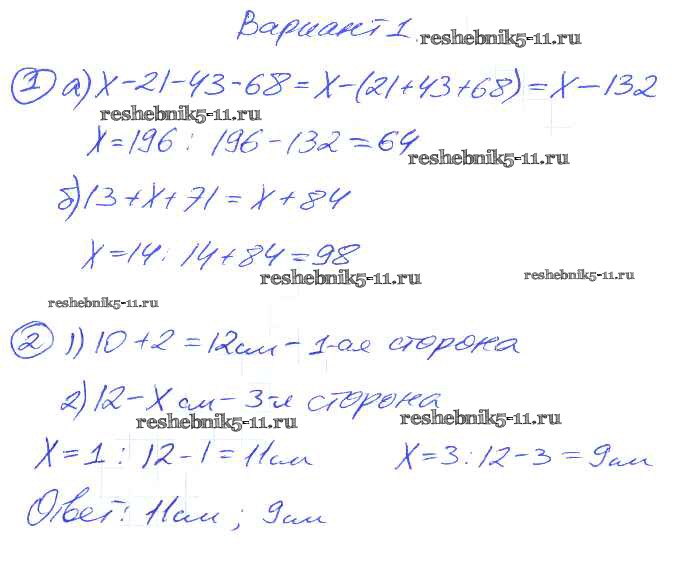 Вариант 1 reshebnik5-11.ru
1 а) x-21-43-68=x-(21+43+68)=x-132
reshebnik5-11.ru
x=196: 196-132=64
reshebnik5-11.ru
б) 13+x+71=x+84
x=14: 14+84=98
reshebnik5-11.ru reshebnik5-11.ru
reshebnik5-11.ru
2 1) 10+2=12см-1-ая сторона
2) 12-x см-3-я сторона
reshebnik5-11.ru reshebnik5-11.ru
x=1: 12-1=11см x=3: 12-3=9см
Ответ: 11см; 9см